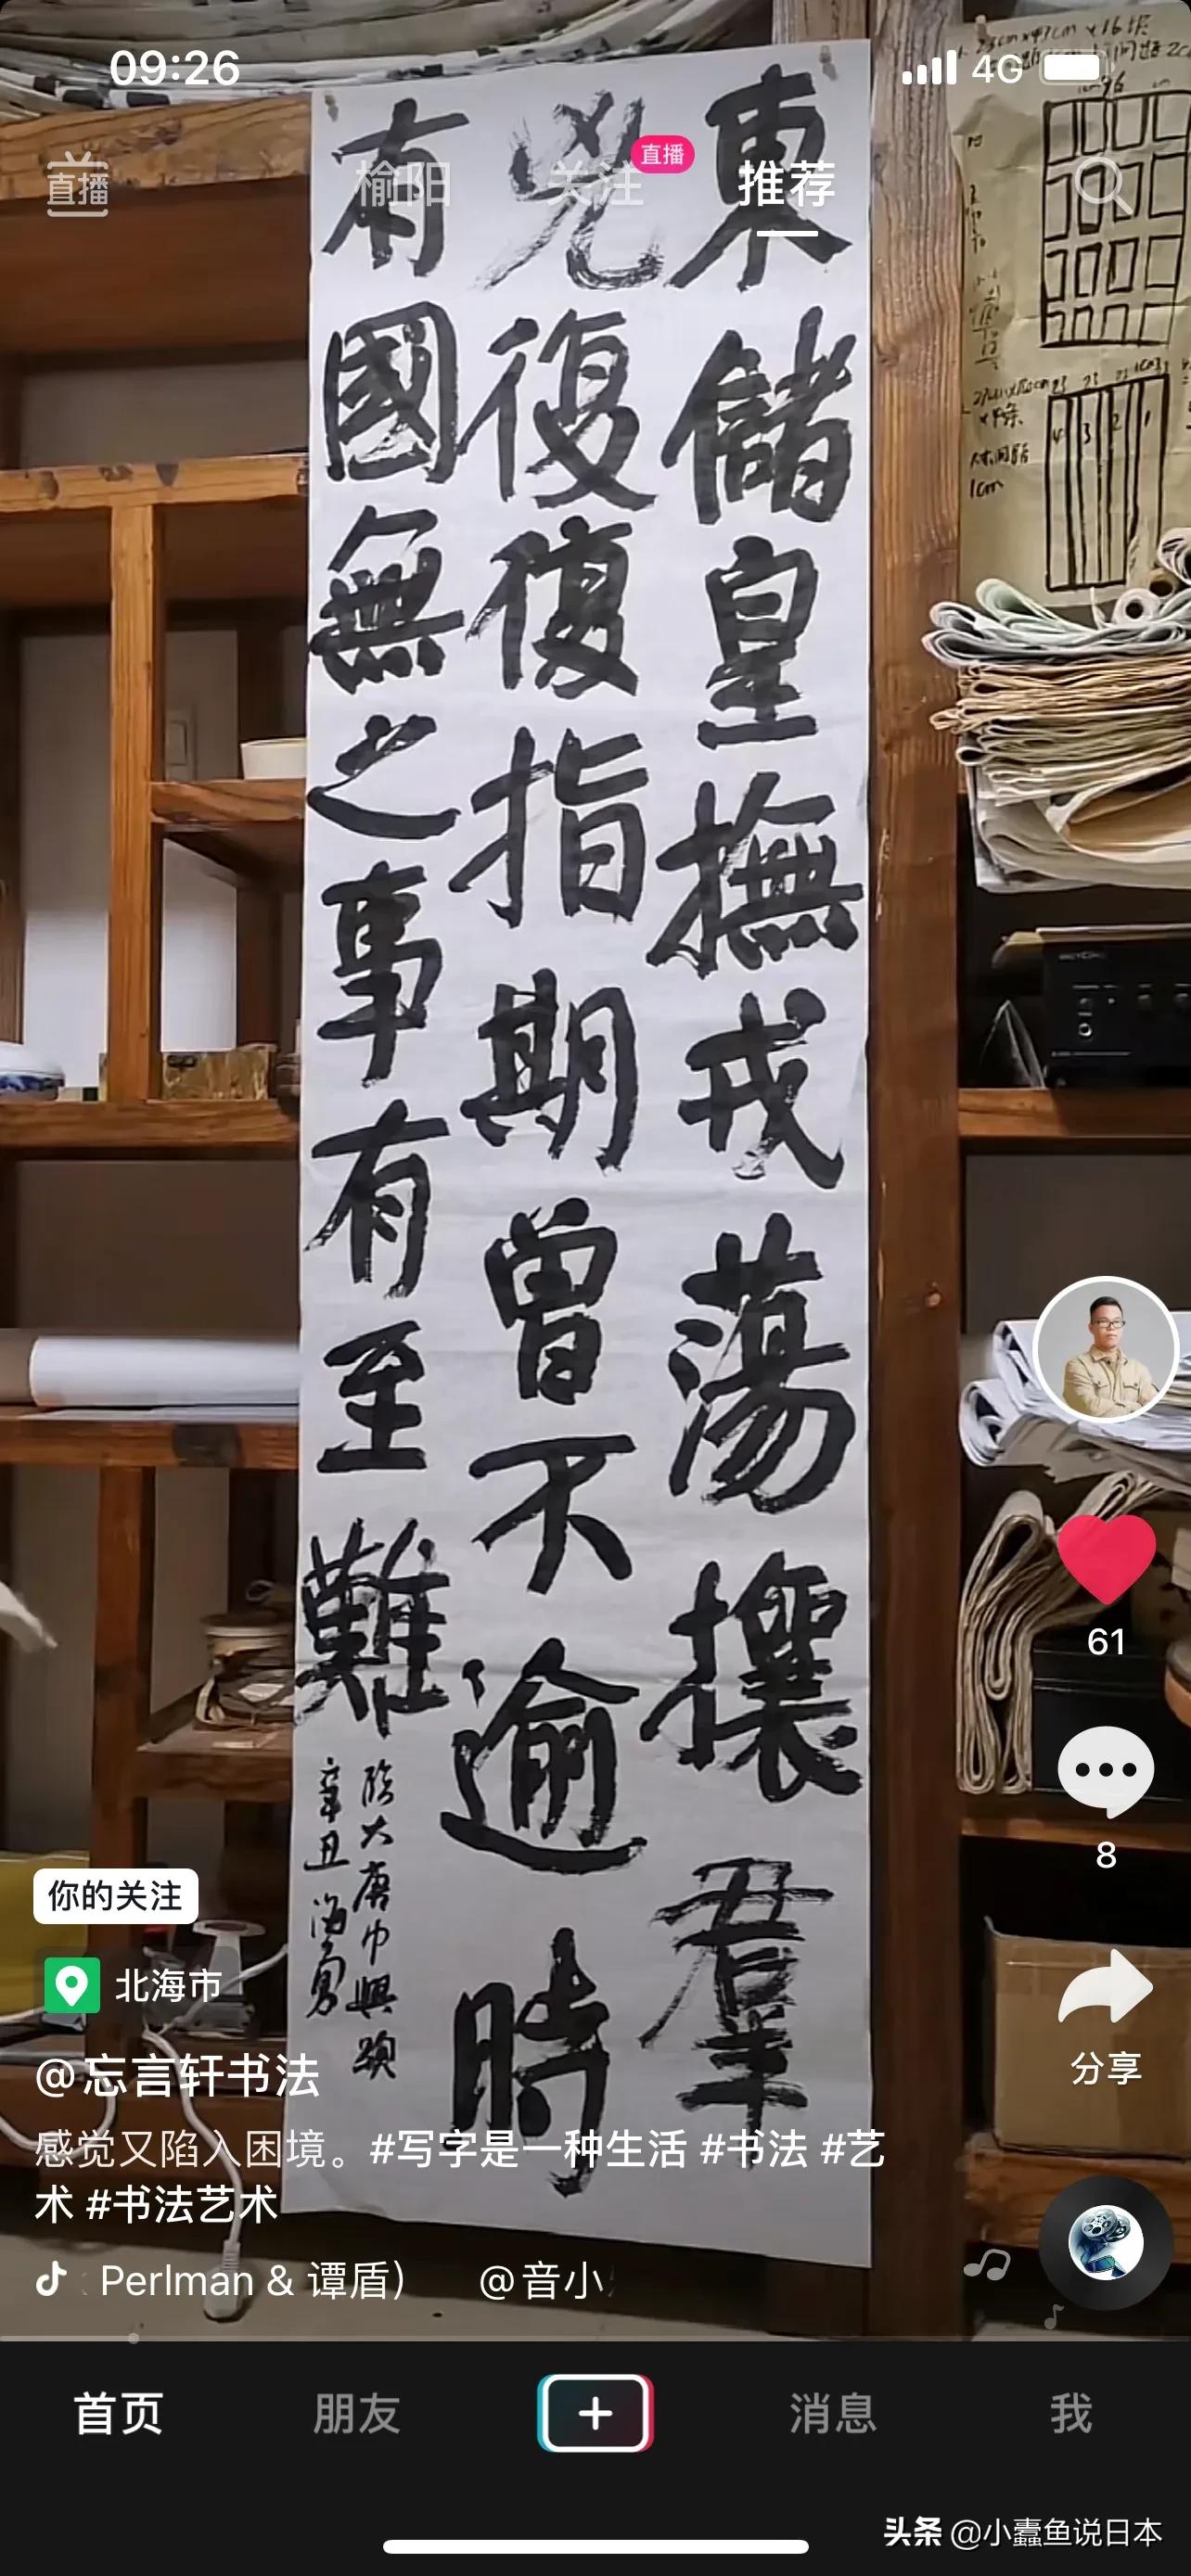 09:26
4G
直播
榆阳
关注
直播
推荐
東儲皇撫戎蕩攘羣
兇復復指期曾不逾時
有國無之事有至難
臨大唐中興頌
辛丑 海勇
1cm
61
8
分享
你的关注
北海市
@忘言轩书法
感觉又陷入困境。#写字是一种生活 #书法 #艺
术 #书法艺术
Perlman & 谭盾) @音小
首页
朋友
消息
我
头条 @小蠹鱼说日本